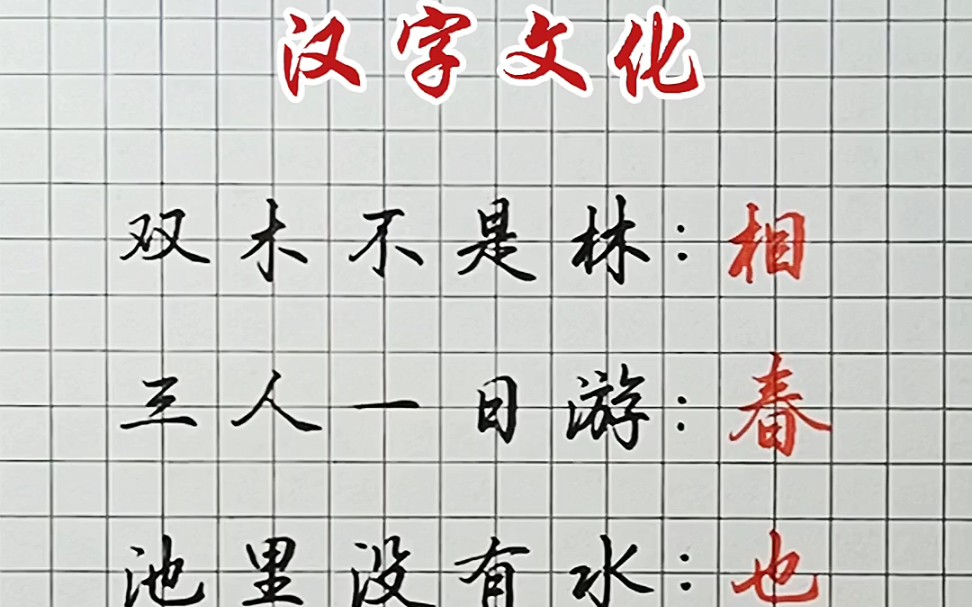 汉字文化
双木不是林:相
三人一日游:春
池里没有水:也